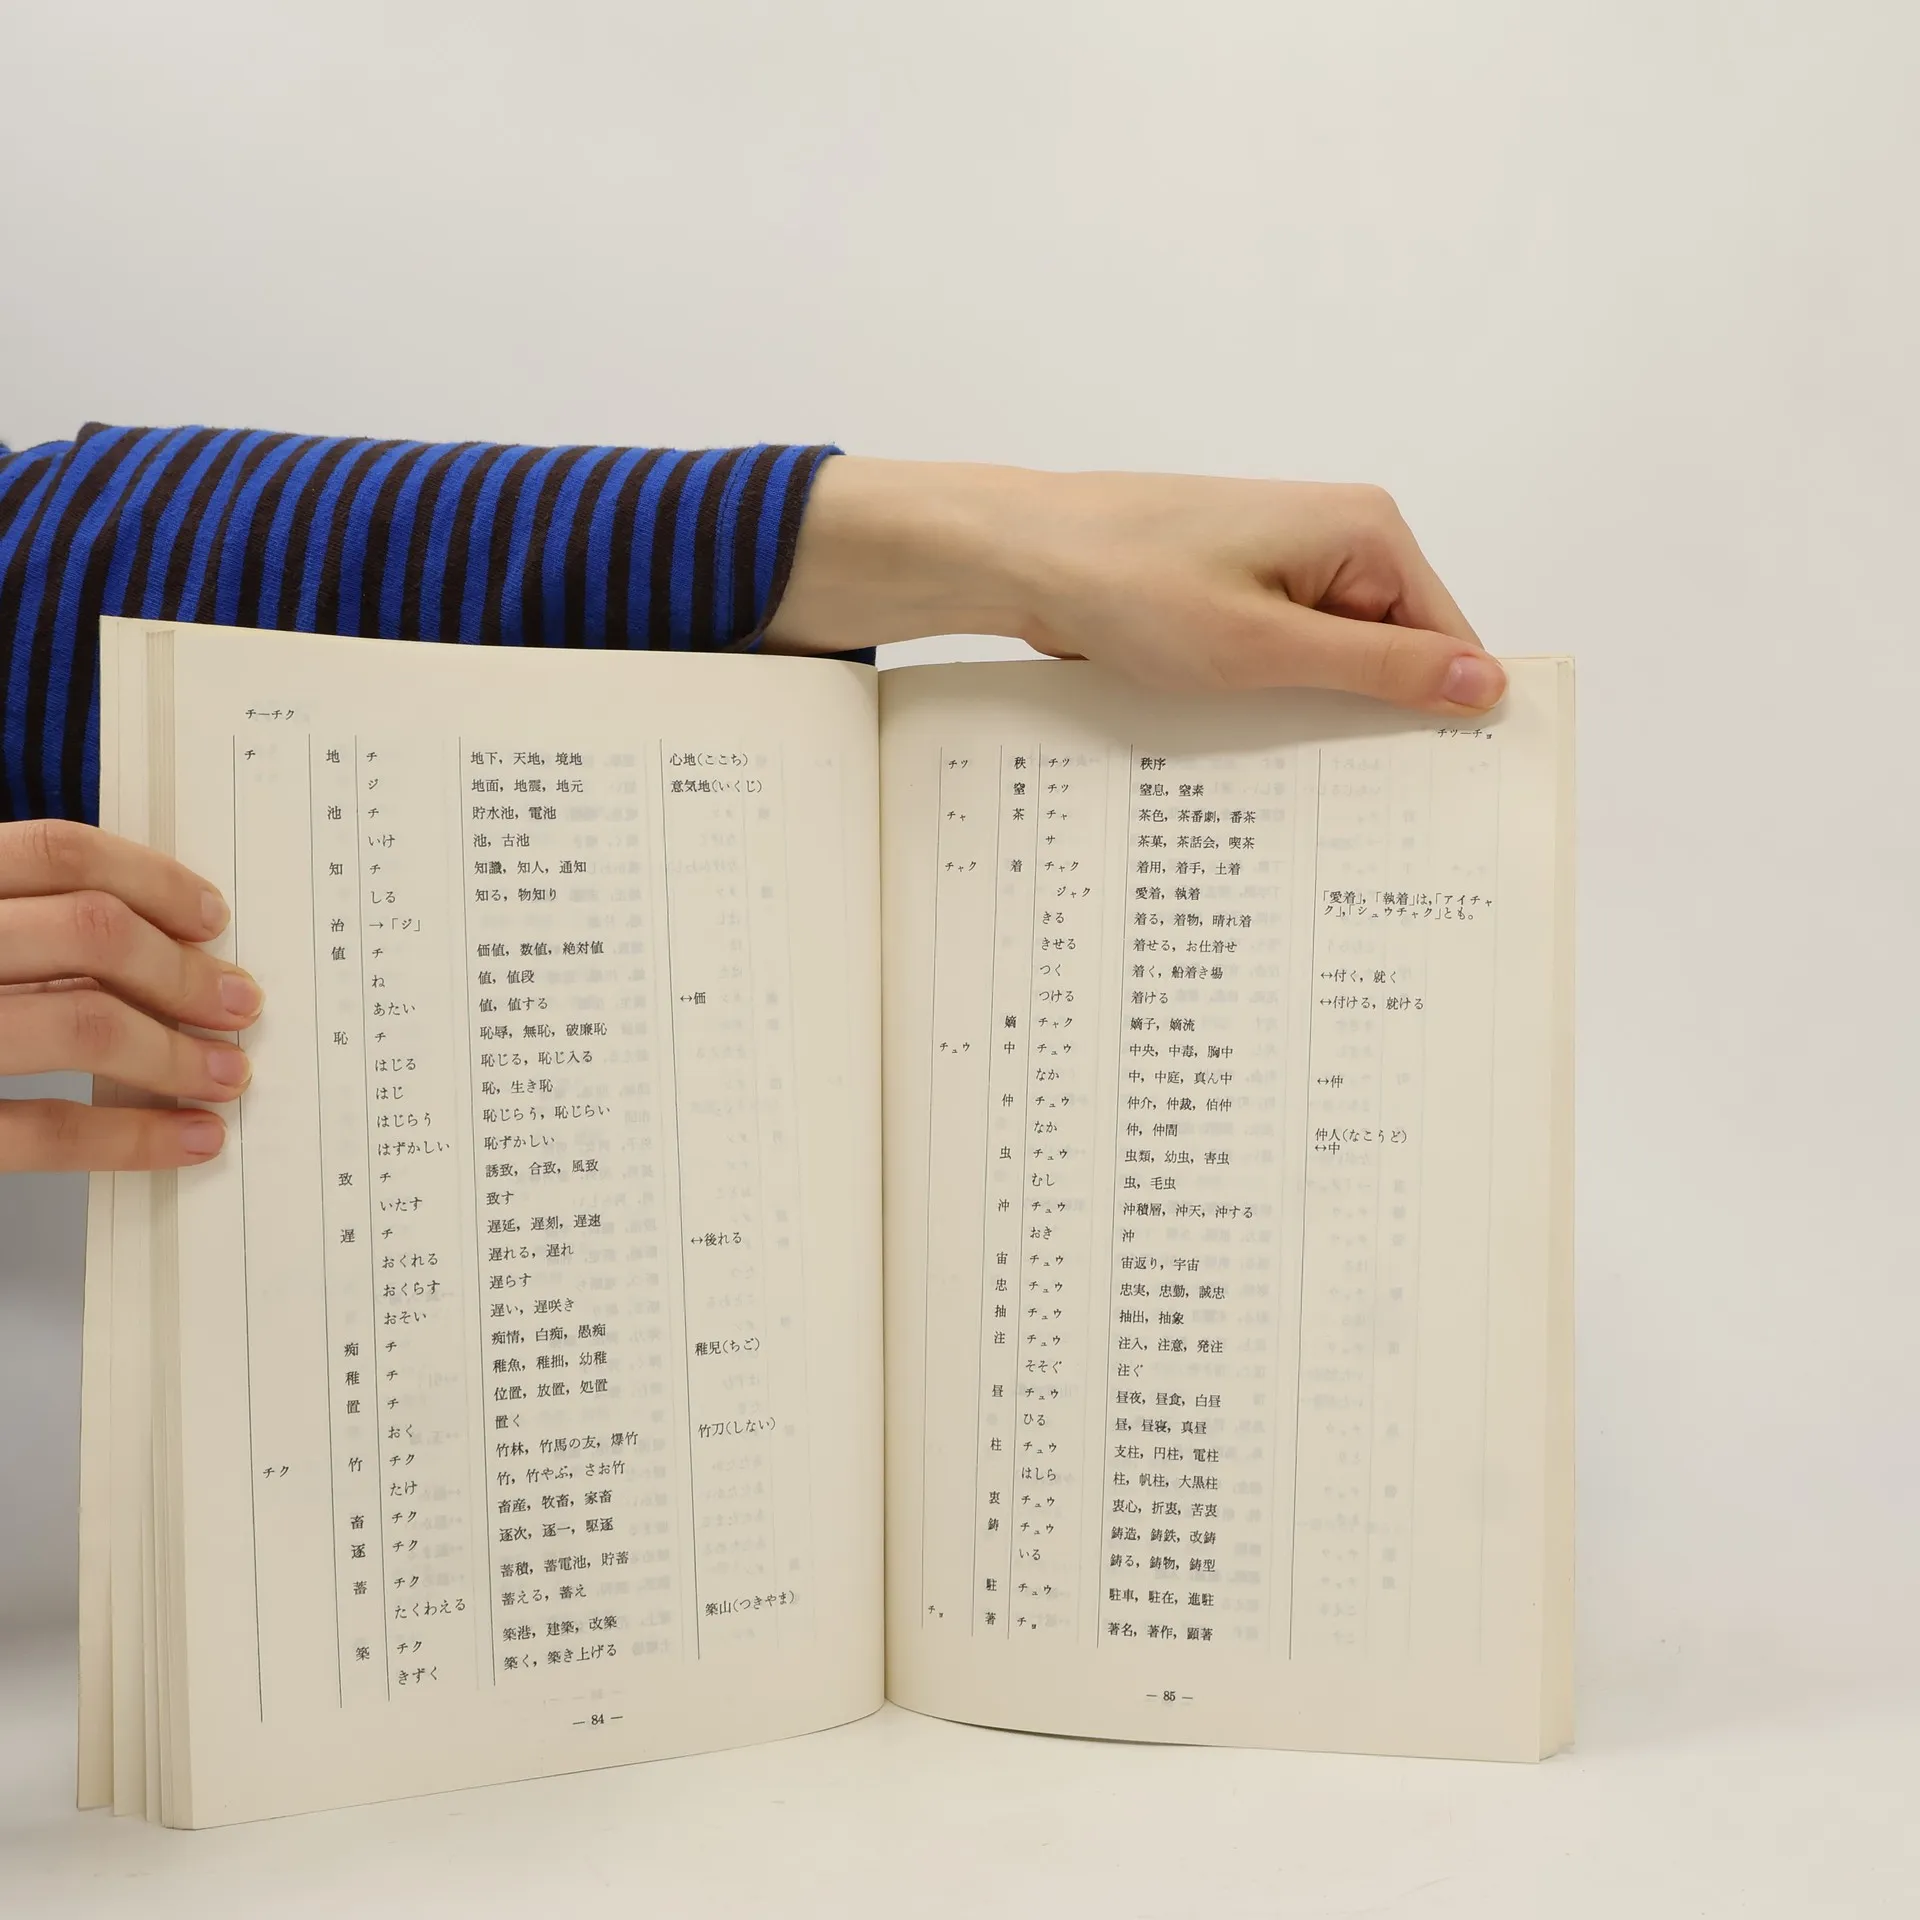 チ—チク
チ 地 チ 地下，天地，境地 心地(ここち)
ジ 地面，地震，地元 意気地(いくじ)
池 チ 貯水池，電池
いけ 池，古池
知 チ 知識，知人，通知
しる 知る，物知り
治 →「ジ」
値 チ 価値，数値，絶対値
ね 値，値段
あたい 値，値する ↔価
恥 チ 恥辱，無恥，破廉恥
はじる 恥じる，恥じ入る
はじ 恥，生き恥
はじらう 恥じらう，恥じらい
はずかしい 恥ずかしい
致 チ 誘致，合致，風致
いたす 致す
遅 チ 遅延，遅刻，遅速
おくれる 遅れる，遅れ ↔後れる
おくらす 遅らす
おそい 遅い，遅咲き
痴 チ 痴情，白痴，愚痴
稚 チ 稚魚，稚拙，幼稚 稚児(ちご)
置 チ 位置，放置，処置
おく 置く
チク 竹 チク 竹林，竹馬の友，爆竹 竹刀(しない)
たけ 竹，竹やぶ，さお竹
畜 チク 畜産，牧畜，家畜
逐 チク 逐次，逐一，駆逐
蓄 チク 蓄積，蓄電池，貯蓄
たくわえる 蓄える，蓄え
築 チク 築港，建築，改築 築山(つきやま)
きずく 築く，築き上げる
— 84 —
チツ—チョ
チツ 秩 チツ 秩序
窒 チツ 窒息，窒素
チャ 茶 チャ 茶色，茶番劇，番茶
サ 茶菓，茶話会，喫茶
チャク 着 チャク 着用，着手，土着
ジャク 愛着，執着 「愛着」，「執着」は，「アイチャ
ク」，「シュウチャク」とも。
きる 着る，着物，晴れ着
きせる 着せる，お仕着せ
つく 着く，船着き場 ↔付く，就く
つける 着ける ↔付ける，就ける
嫡 チャク 嫡子，嫡流
チュウ 中 チュウ 中央，中毒，胸中
なか 中，中庭，真ん中 ↔仲
仲 チュウ 仲介，仲裁，伯仲
なか 仲，仲間 仲人(なこうど)
↔中
虫 チュウ 虫類，幼虫，害虫
むし 虫，毛虫
沖 チュウ 沖積層，沖天，沖する
おき 沖
宙 チュウ 宙返り，宇宙
忠 チュウ 忠実，忠勤，誠忠
抽 チュウ 抽出，抽象
注 チュウ 注入，注意，発注
そそぐ 注ぐ
昼 チュウ 昼夜，昼食，白昼
ひる 昼，昼寝，真昼
柱 チュウ 支柱，円柱，電柱
はしら 柱，帆柱，大黒柱
衷 チュウ 衷心，折衷，苦衷
鋳 チュウ 鋳造，鋳鉄，改鋳
いる 鋳る，鋳物，鋳型
駐 チュウ 駐車，駐在，進駐
チョ 著 チョ 著名，著作，顕著
— 85 —